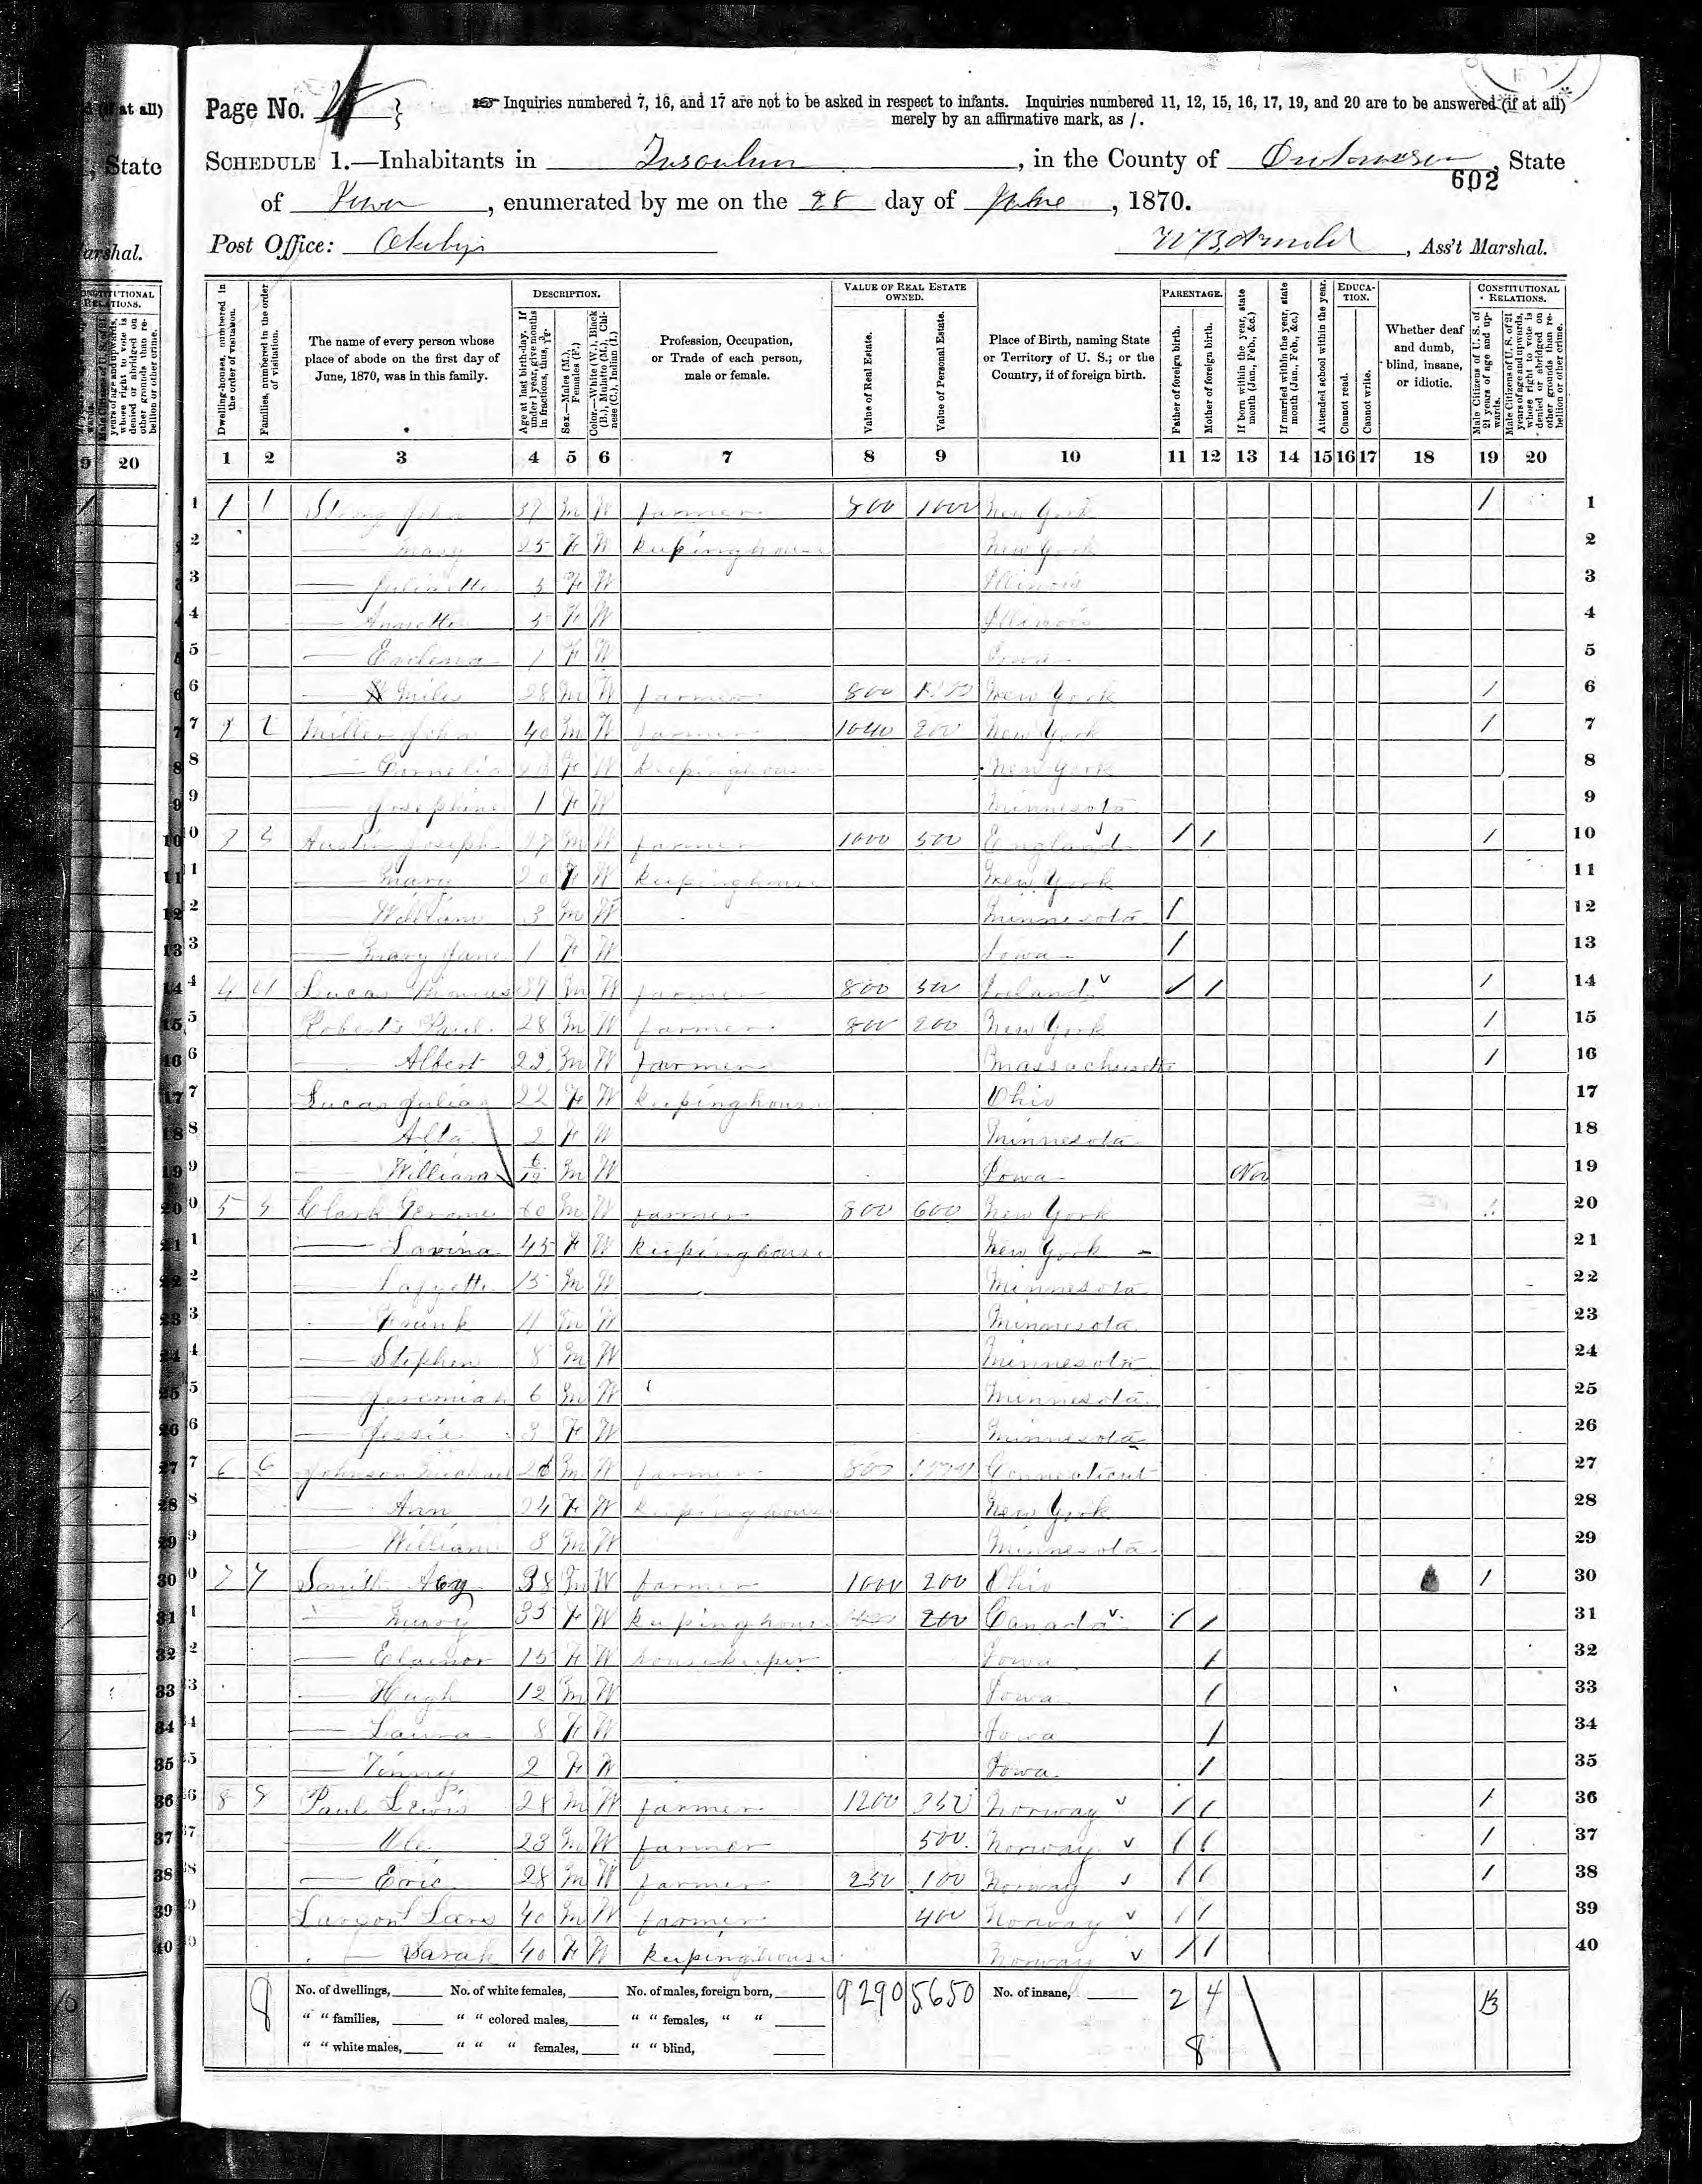 Page No.
Inquiries numbered 7, 16, and 17 are not to be asked in respect to infants. Inquiries numbered 11, 12, 15, 16, 17, 19, and 20 are to be answered (if at all)
merely by an affirmative mark, as /.
SCHEDULE 1.—Inhabitants in , in the County of , State
602
of Iowa, enumerated by me on the 28 day of June, 1870.
Post Office: W B Arnold, Ass't Marshal.
Dwelling-houses, numbered in the order of visitation.
Families, numbered in the order of visitation.
The name of every person whose place of abode on the first day of June, 1870, was in this family.
DESCRIPTION.
Age at last birth-day. If under 1 year, give months in fractions, thus, 3/12.
Sex.—Males (M.), Females (F.)
Color.—White (W.), Black (B.), Mulatto (M.), Chinese (C.), Indian (I.)
Profession, Occupation, or Trade of each person, male or female.
VALUE OF REAL ESTATE OWNED.
Value of Real Estate.
Value of Personal Estate.
Place of Birth, naming State or Territory of U. S.; or the Country, if of foreign birth.
PARENTAGE.
Father of foreign birth.
Mother of foreign birth.
If born within the year, state month (Jan., Feb., &c.)
If married within the year, state month (Jan., Feb., &c.)
Attended school within the year.
EDUCATION.
Cannot read.
Cannot write.
Whether deaf and dumb, blind, insane, or idiotic.
CONSTITUTIONAL RELATIONS.
Male Citizens of U. S. of 21 years of age and upwards.
Male Citizens of U. S. of 21 years of age and upwards, whose right to vote is denied or abridged on other grounds than rebellion or other crime.
1 2 3 4 5 6 7 8 9 10 11 12 13 14 15 16 17 18 19 20
1 1 1 Strong John 37 M W farmer 800 1000 New York / 1
2 — Mary 25 F W keeping house New York 2
3 — Juliaette F W Illinois 3
4 — Annette F W Illinois 4
5 — 1 F W Iowa 5
6 — Miles 28 M W farmer 800 New York / 6
7 2 2 Miller John 40 M W farmer 1040 200 New York / 7
8 — Cornelia F W keeping house New York 8
9 — Josephine 1 F W Minnesota 9
10 3 3 Austin Joseph 27 M W farmer 1000 500 England / / / 10
11 — Mary 20 F W keeping house New York 11
12 — William 3 M W Minnesota / 12
13 — Mary Jane 1 F W Iowa / 13
14 4 4 Lucas Thomas 37 M W farmer 800 500 Ireland / / / 14
15 Roberts Paul 28 M W farmer 800 200 New York / 15
16 — Albert 22 M W farmer Massachusetts / 16
17 Lucas Julia 22 F W keeping house Ohio 17
18 — Alta 2 F W Minnesota 18
19 — William 6/12 M W Iowa Nov 19
20 5 5 Clark Gerome 60 M W farmer 800 600 New York 20
21 — Lavina 45 F W keeping house New York 21
22 — Lafyette 15 M W Minnesota 22
23 — Frank 11 M W Minnesota 23
24 — Stephen 8 M W Minnesota 24
25 — Jeremiah 6 M W Minnesota 25
26 — Jessie 3 F W Minnesota 26
27 6 6 Johnson Michael 26 M W farmer 800 Connecticut 27
28 — Ann 24 F W keeping house New York 28
29 — William 3 M W Minnesota 29
30 7 7 Smith 38 M W farmer 1000 200 Ohio / 30
31 — Mary 35 F W keeping house 200 Canada / / 31
32 — Elaenor 15 F W housekeeper Iowa / 32
33 — Hugh 12 M W Iowa / 33
34 — Laura 8 F W Iowa / 34
35 — 2 F W Iowa / 35
36 8 8 Paul Lewis 28 M W farmer 1200 350 Norway / / / 36
37 — Ole 23 M W farmer 500 Norway / / / 37
38 — Eric 28 M W farmer 250 100 Norway / / / 38
39 Larson Lars 40 M W farmer 400 Norway / / 39
40 — Sarah 40 F W keeping house Norway / / 40
8 No. of dwellings, No. of white females, No. of males, foreign born, 9290 5650 No. of insane, 2 4 13
" " families, " " colored males, " " females, " "
" " white males, " " " females, " " blind, 8